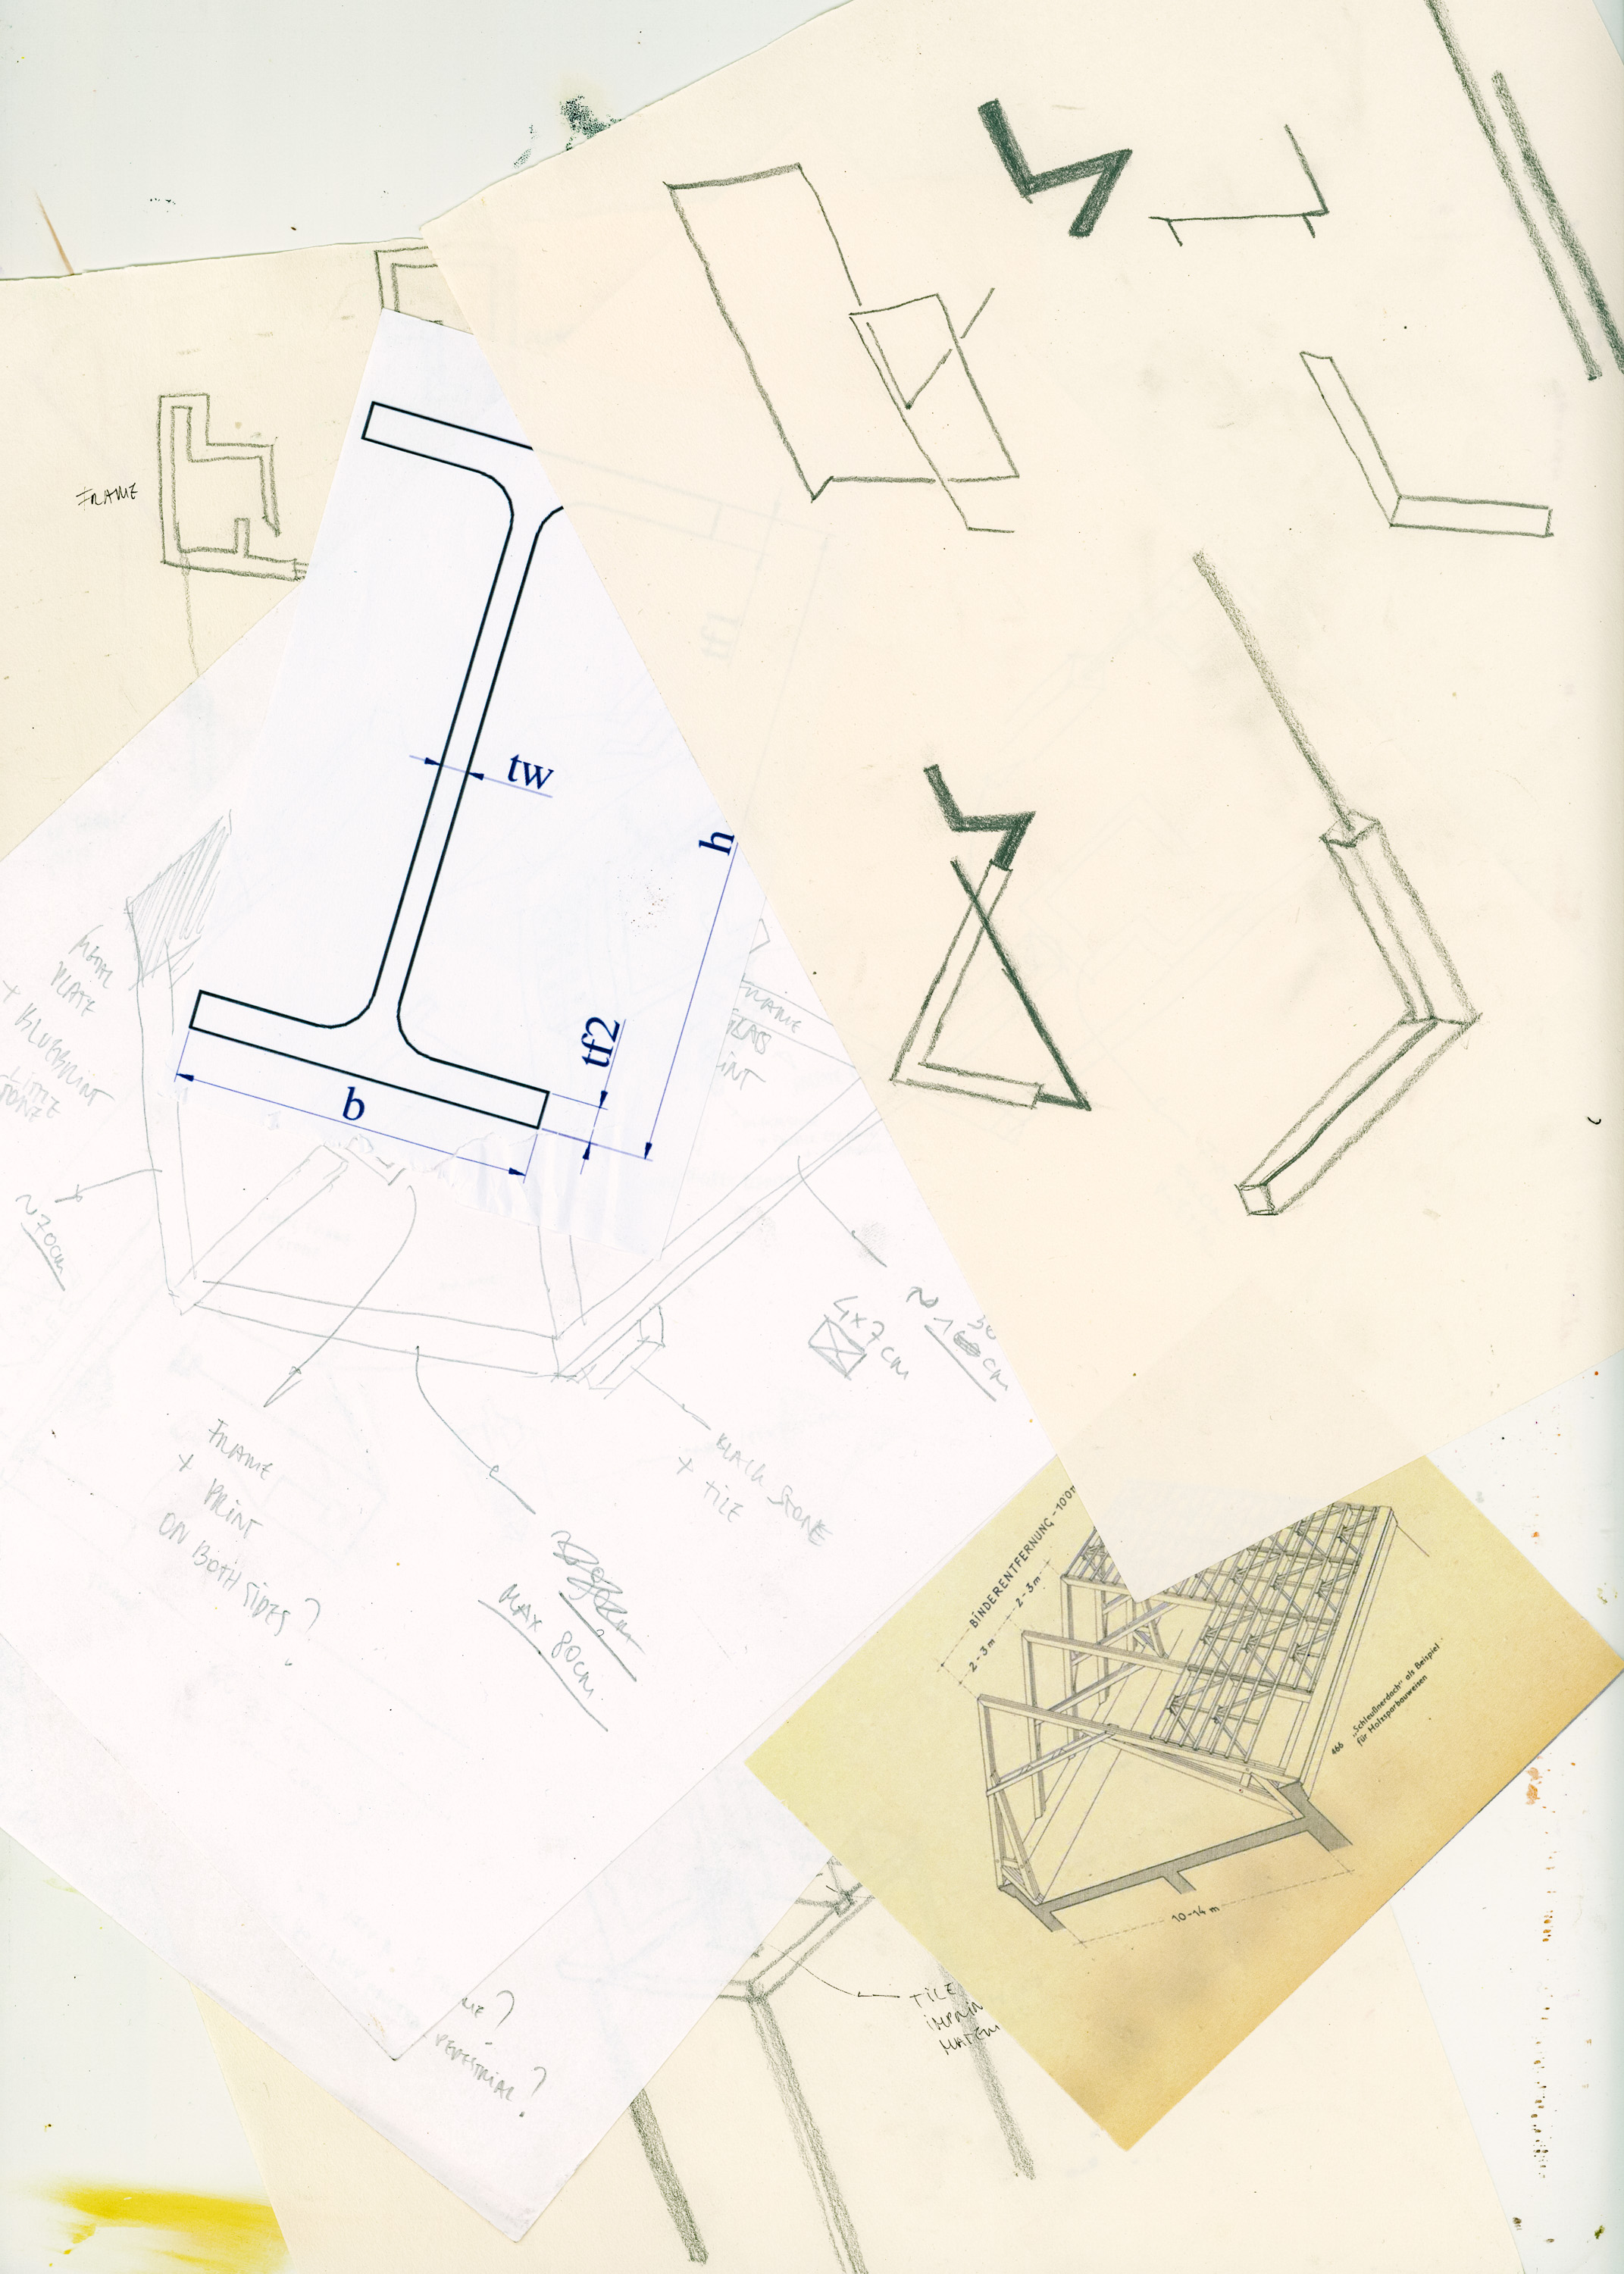 FRAME
tw
h
tf2
b
METAL
PLATE
+ BLUEPRINT
LITTLE
FRAME
~70cm
4x7
cm
FRAME
+ PRINT
ON BOTH SIDES?
BLACK STONE
+ TILE
MAX 80cm
BINDERENTFERNUNG - 10
2-3m
2-3m
466 „Schleußnerdach" als Beispiel
für Holzsparbauweisen
10-14 m
TILE
?
PEDESTRIAL?